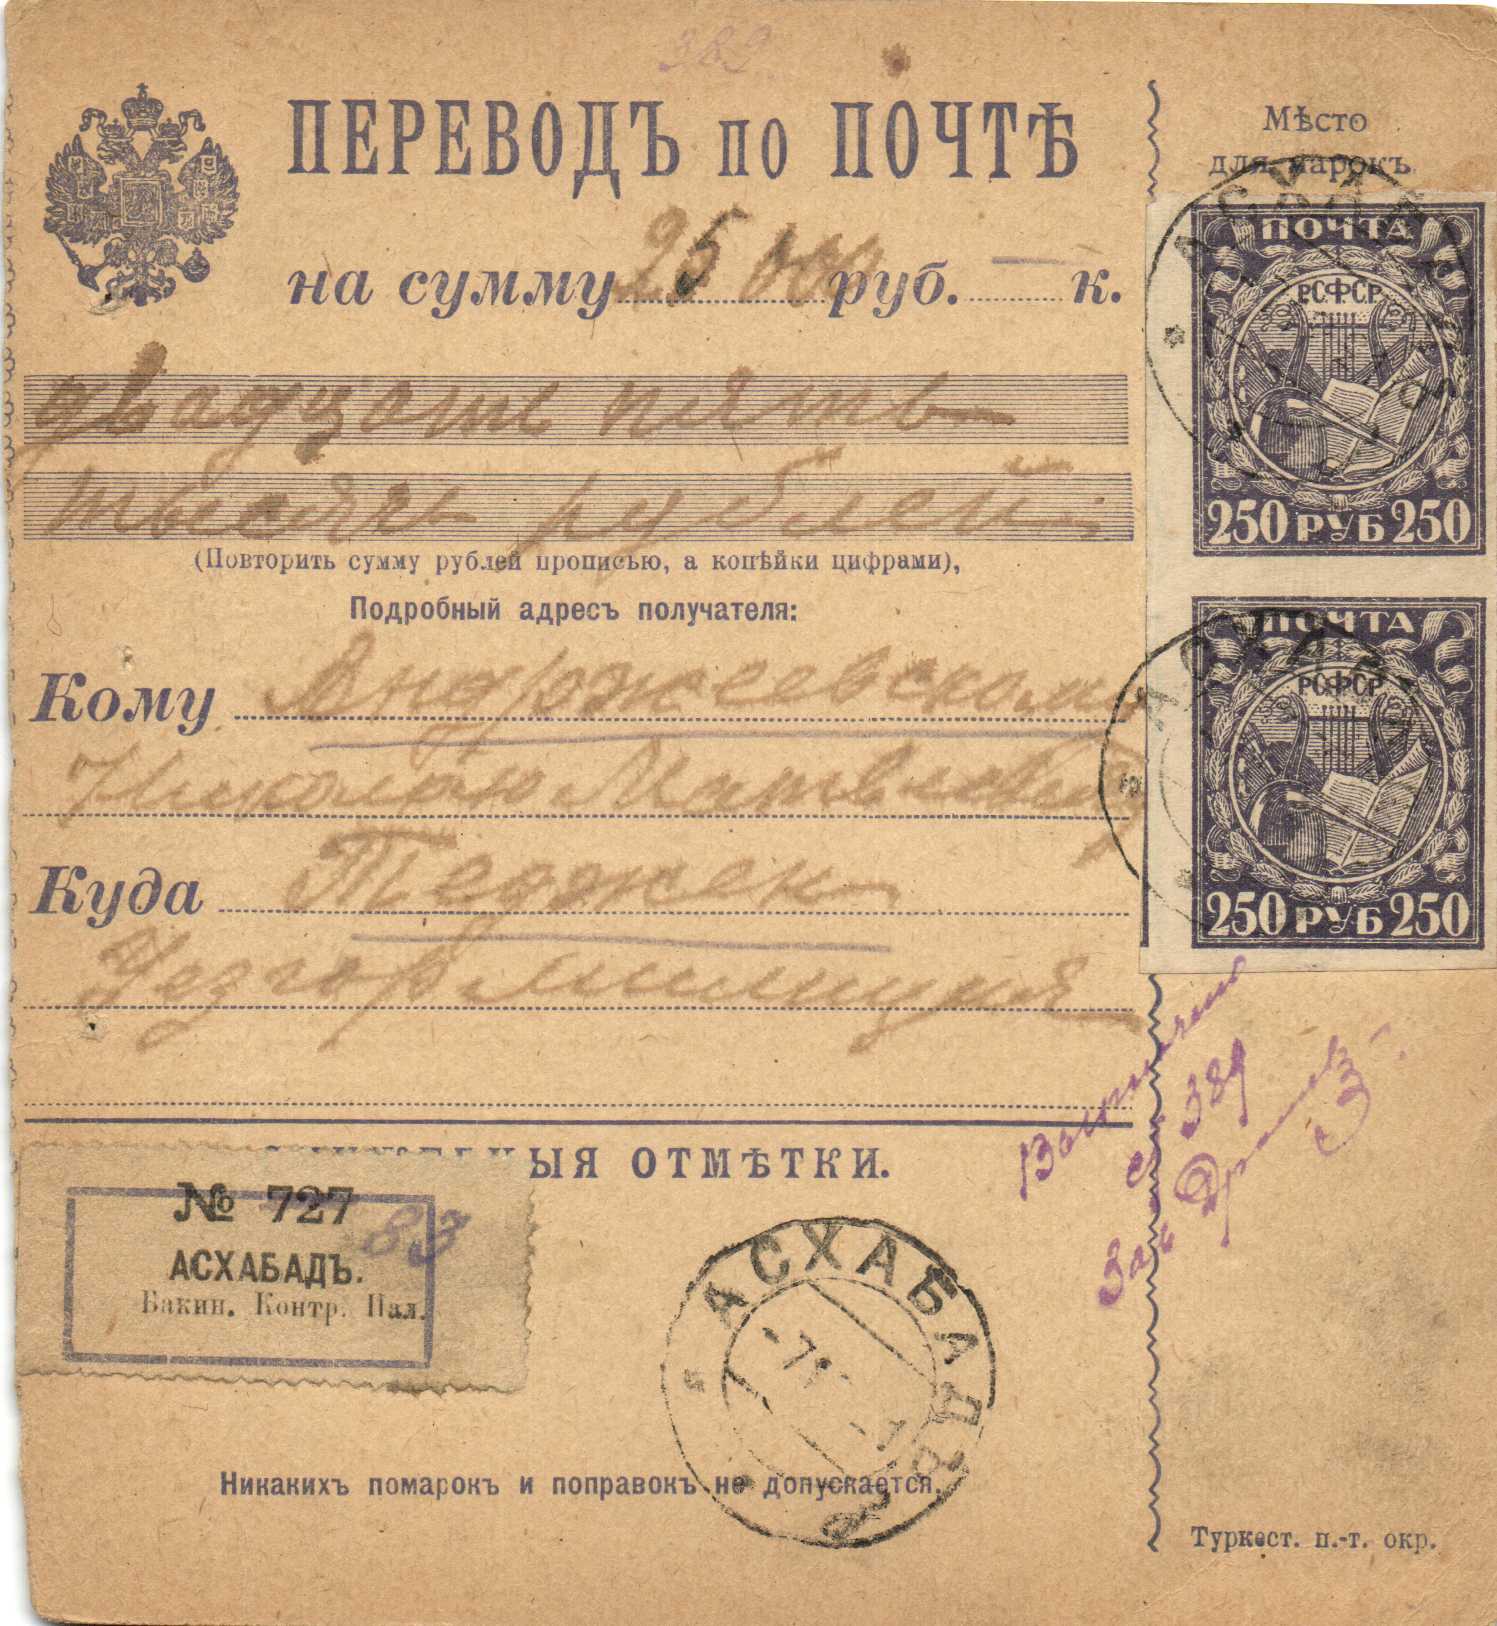 389
ПЕРЕВОДЪ по ПОЧТѢ
на сумму 25 000 руб. — к.
двадцать пять
тысячь рублей
(Повторить сумму рублей прописью, а копѣйки цифрами),
Подробный адресъ получателя:
Кому Андржеевскому
Николаю Матвеевичу
Куда Теджен
Уезгормилиция
Мѣсто
для марокъ
АСХАБАДЪ
ПОЧТА
РСФСР
250 РУБ 250
АСХАБАДЪ
ПОЧТА
РСФСР
250 РУБ 250
389
ЫЯ ОТМѢТКИ.
№ 727
83
АСХАБАДЪ.
Бакин. Контр. Пал.
АСХАБАДЪ
Никакихъ помарокъ и поправокъ не допускается.
Туркест. п.-т. окр.